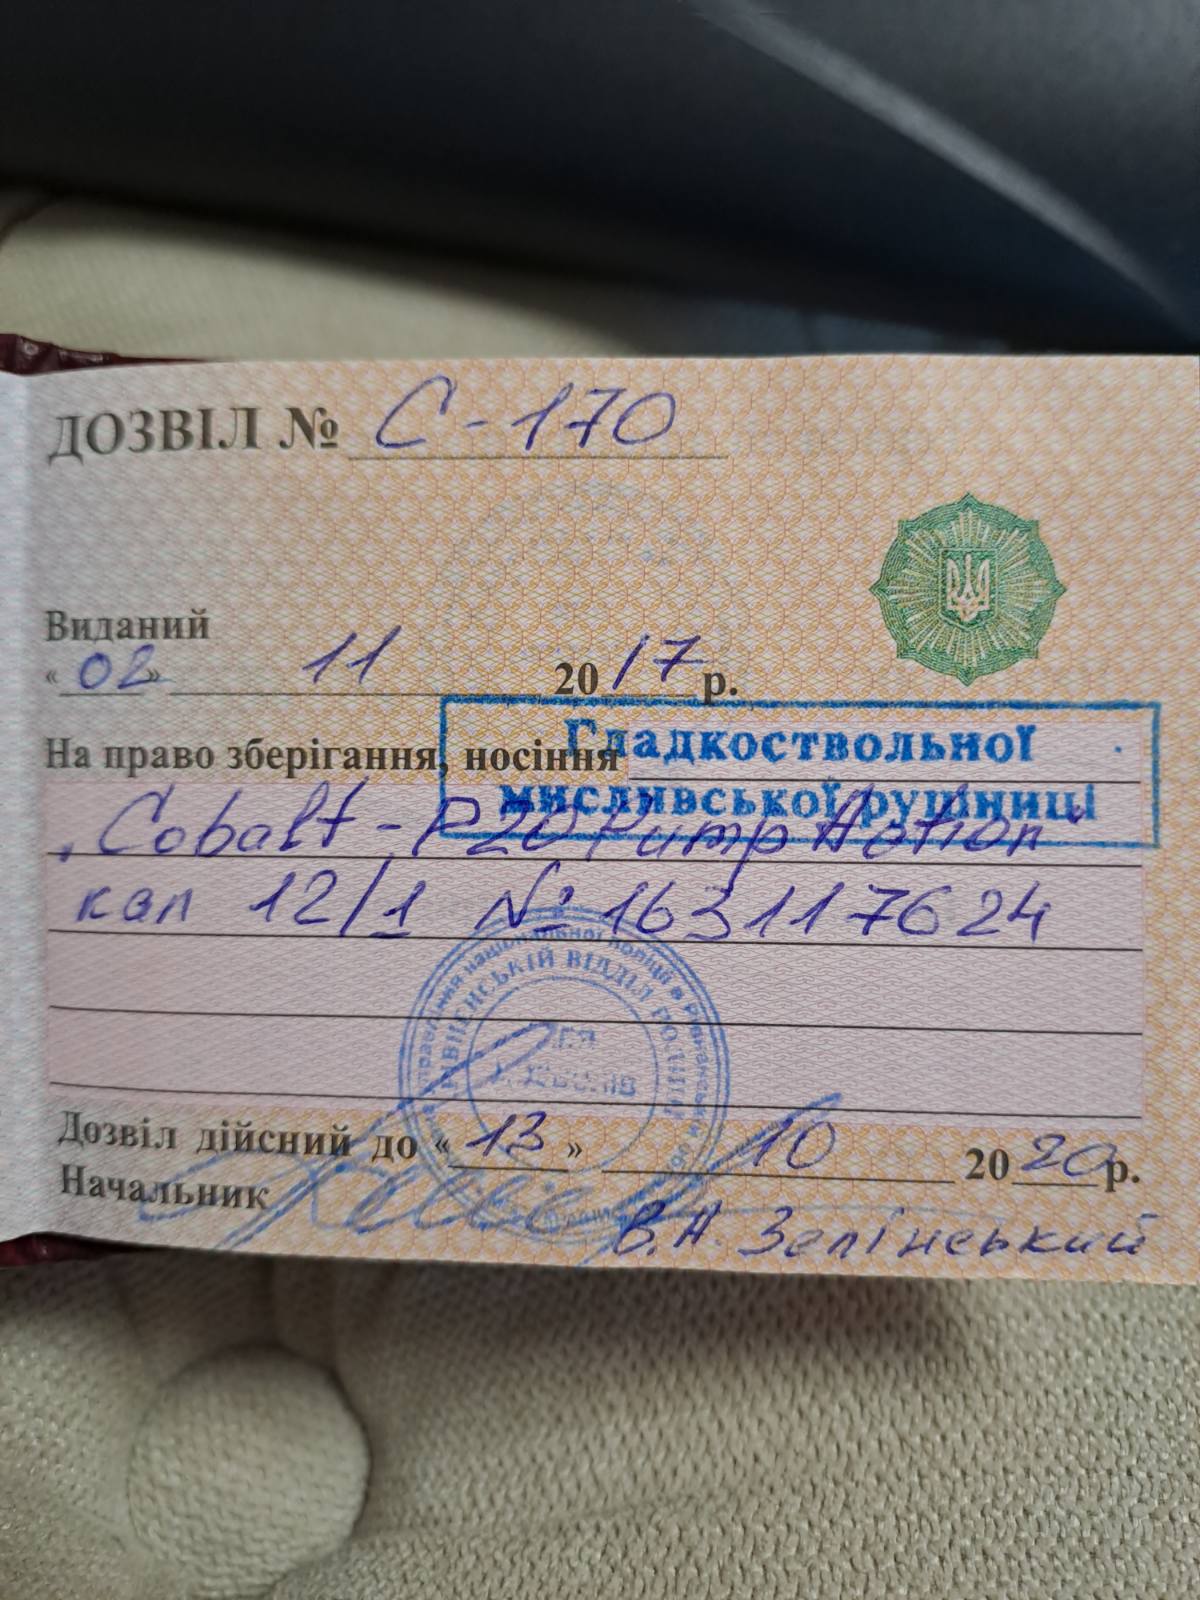 ДОЗВІЛ № С-170
Виданий
«02» 11 2017 р.
На право зберігання, носіння Гладкоствольної
мисливської рушниці
"Cobalt-P20 Pump Action"
кал 12/1 № 163117624
РІВНЕНСЬКИЙ ВІДДІЛ ПОЛІЦІЇ
Дозвіл дійсний до «13» 10 2020р.
Начальник
В.А. Зелінський